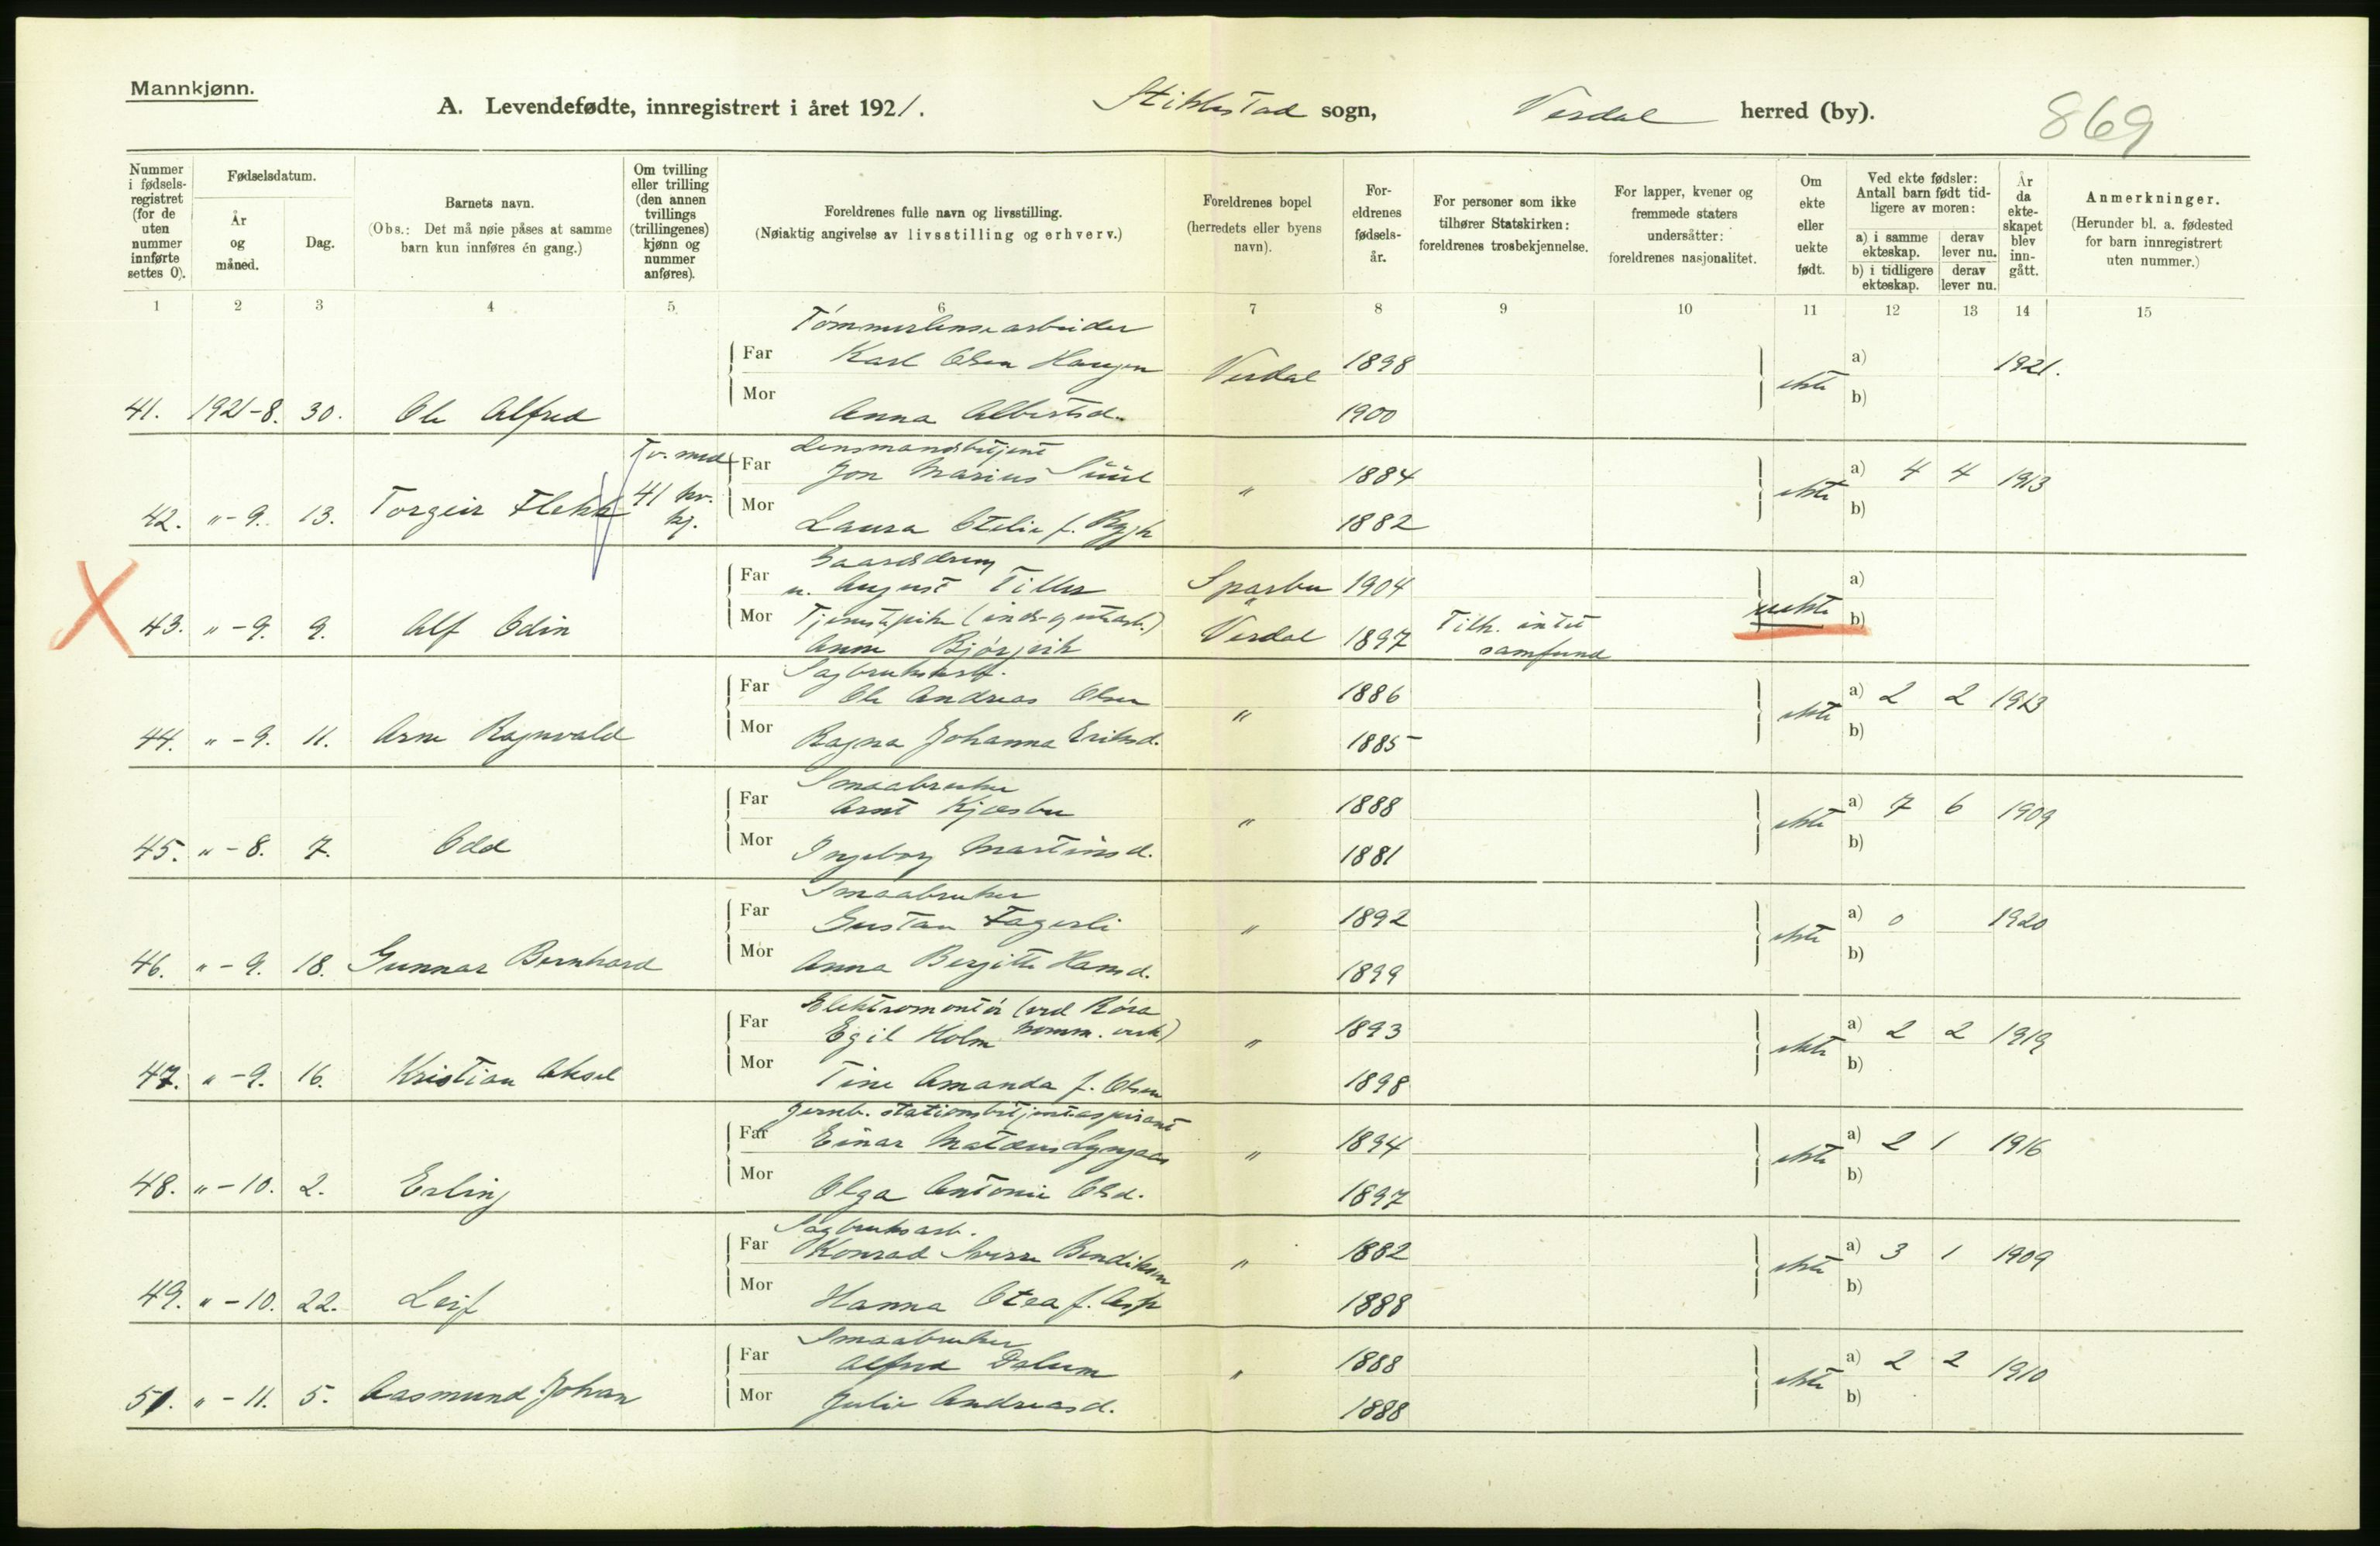 Mannkjønn.
A. Levendefødte, innregistrert i året 1921.
Stiklestad sogn, Verdal herred (by).
869
Nummer i fødsels-registret (for de uten nummer innførte settes 0).
Fødselsdatum.
År og måned.
Dag.
Barnets navn.
(Obs.: Det må nøie påses at samme barn kun innføres én gang.)
Om tvilling eller trilling (den annen tvillings (trillingenes) kjønn og nummer anføres).
Foreldrenes fulle navn og livsstilling.
(Nøiaktig angivelse av livsstilling og erhverv.)
Foreldrenes bopel (herredets eller byens navn).
For-eldrenes fødsels-år.
For personer som ikke tilhører Statskirken: foreldrenes trosbekjennelse.
For lapper, kvener og fremmede staters undersåtter: foreldrenes nasjonalitet.
Om ekte eller uekte født.
Ved ekte fødsler: Antall barn født tid-ligere av moren:
a) i samme ekteskap.
derav lever nu.
b) i tidligere ekteskap.
derav lever nu.
År da ekte-skapet blev inn-gått.
Anmerkninger.
(Herunder bl. a. fødested for barn innregistrert uten nummer.)
1 2 3 4 5 6 7 8 9 10 11 12 13 14 15
Tømmerlensearbeider
Far Karl Olsen Haugen Verdal 1898 ekte a) 1921.
41. 1921-8. 30. Ole Alfred Mor Anna Albertsd. 1900 b)
Tv. med 41 kv. kj.
Lensmandsbetjent
Far Jon Marius Süul " 1884 ekte a) 4 4 1913
42. "-9. 13. Torgeir Flekk Mor Laura Otelie f. Rygh 1882 b)
Gaardsdreng
Far u. August Tiller Sparbu 1904 uekte a)
Mor Tjenestepike (inds- og utearb.)
43. "-9. 9. Alf Odin Anna Bjørgvik Verdal 1897 Tilh. intet samfund b)
Sagbruksarb.
Far Ole Andreas Olsen " 1886 ekte a) 2 2 1913
44. "-9. 11. Arne Ragnvald Mor Ragna Johanna Eriksd. 1885 b)
Smaabruker
Far Arnt Kjæsbu " 1888 ekte a) 7 6 1909
45. "-8. 7. Odd Mor Ingeborg Martinsd. 1881 b)
Smaabruker
Far Gustav Fagerli " 1892 ekte a) 0 1920
46. "-9. 18. Gunnar Bernhard Mor Anna Bergitte Hansd. 1899 b)
Elektromontør (ved Røra komm. verk)
Far Egil Holm " 1893 ekte a) 2 2 1919
47. "-9. 16. Kristian Aksel Mor Tine Amanda f. Olsen 1898 b)
Jernb. stationsbetjentaspirant
Far Einar Mateus Lyngaas " 1894 ekte a) 2 1 1916
48. "-10. 2. Erling Mor Olga Antonie Olsd. 1897 b)
Sagbruksarb.
Far Konrad Sverre Bendiksen " 1882 ekte a) 3 1 1909
49. "-10. 22. Leif Mor Hanna Otea f. Asp 1888 b)
Smaabruker
Far Alfred Dalum " 1888 ekte a) 2 2 1910
50. "-11. 5. Aasmund Johan Mor Julie Andreasd. 1888 b)